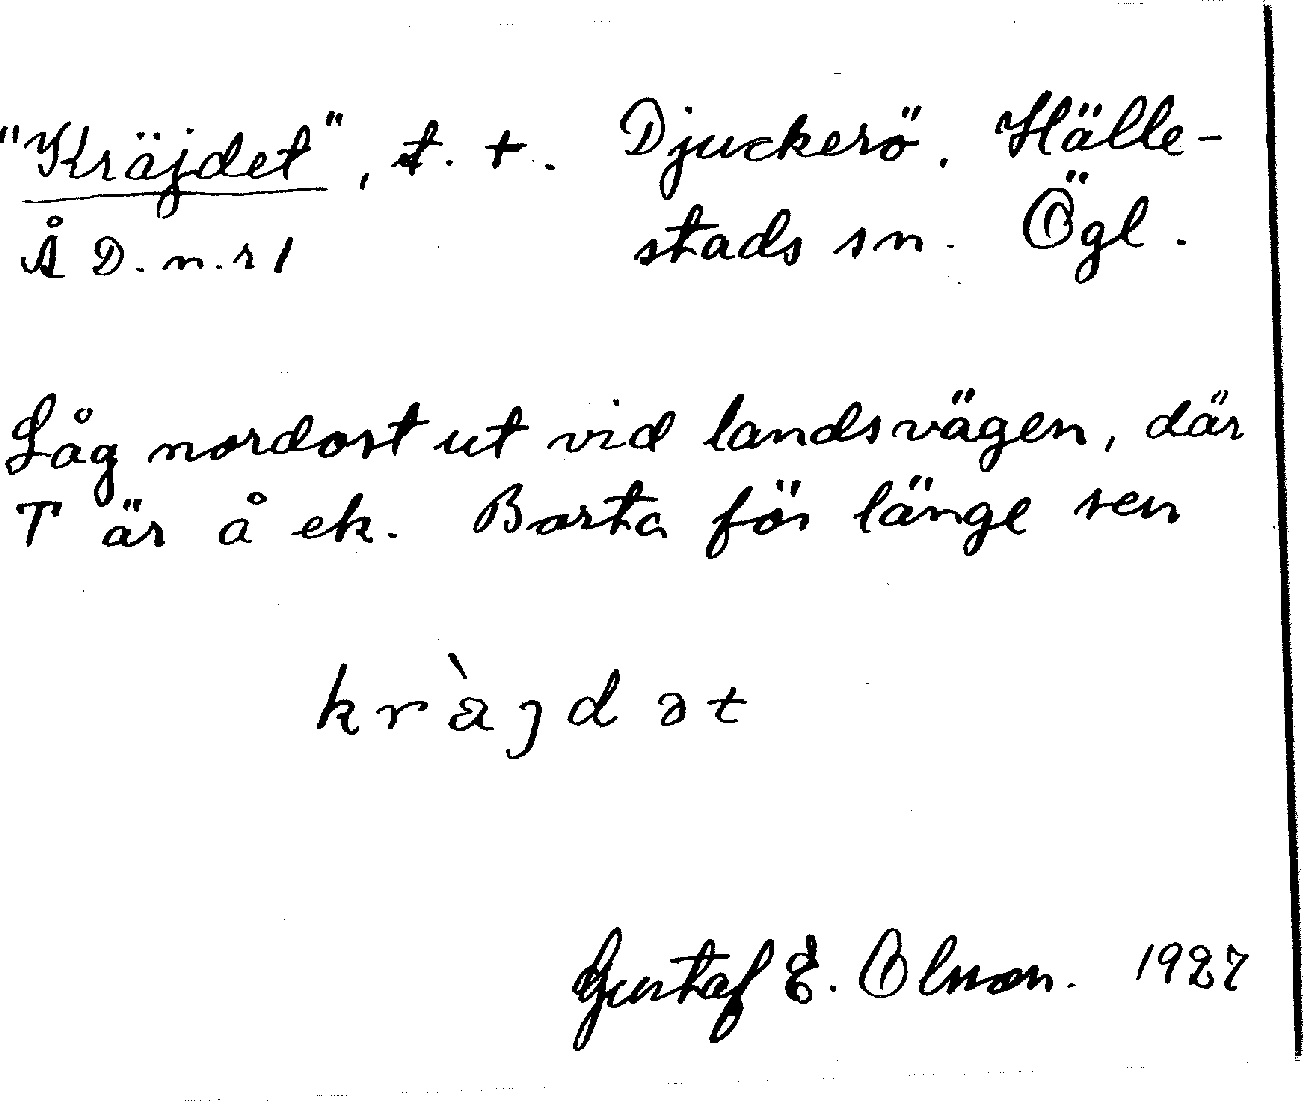 "Kräjdet", t. +. Djuckerö. Hälle-
Å D. n.r 1 stads sn. Ögl.
Låg nordost ut vid landsvägen, där
T är å ek. Borta för länge sen
kràjdət
Gustaf E. Olsson. 1927